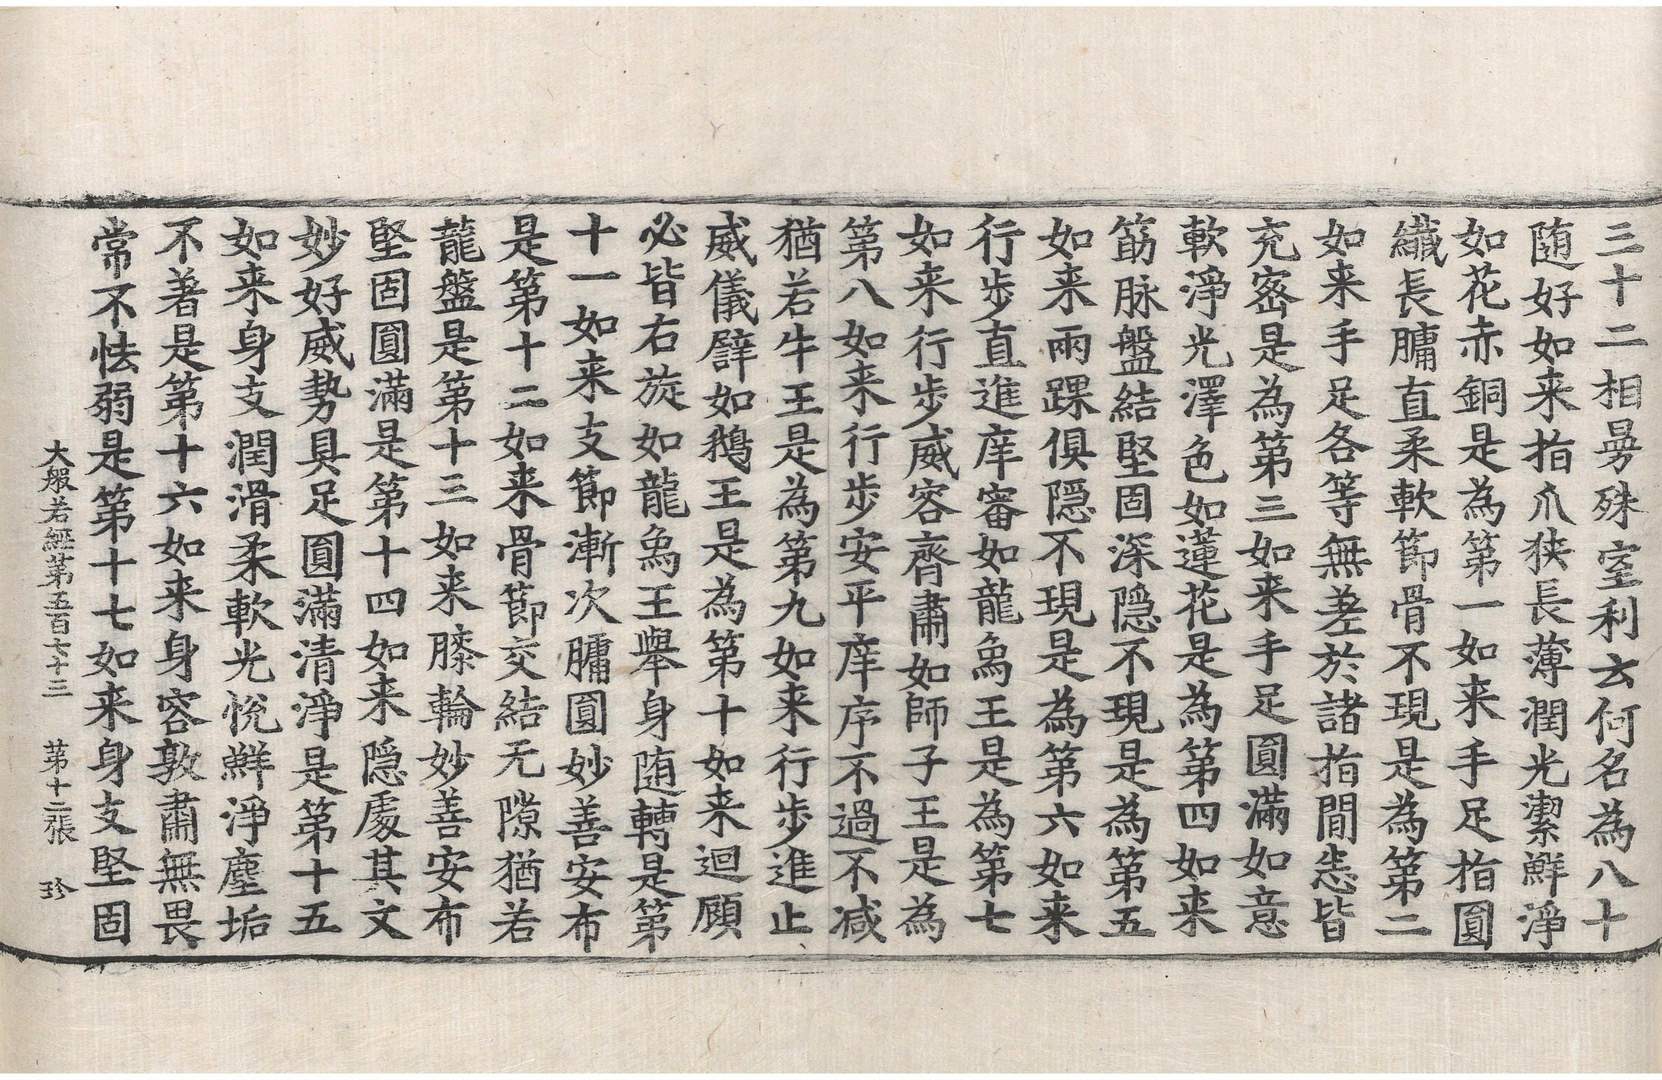 三十二相曼殊室利云何名為八十
随好如来指爪狹長薄潤光潔鮮淨
如花赤銅是為第一如来手足指圓
纖長𦟛直柔軟節骨不現是為第二
如来手足各等無差於諸指間悉皆
充密是為第三如来手足圓滿如意
軟淨光澤色如蓮花是為第四如来
筋脉盤結堅固深隱不現是為第五
如来兩踝俱隱不現是為第六如来
行步直進庠審如龍象王是為第七
如来行步威容齊肅如師子王是為
第八如来行步安平庠序不過不减
猶若牛王是為第九如来行步進止
威儀譬如鵝王是為第十如来迴顧
必皆右旋如龍象王舉身随轉是第
十一如来支節漸次𦟛圓妙善安布
是第十二如来骨節交結无隙猶若
龍盤是第十三如来膝輪妙善安布
堅固圓滿是第十四如来隱處其文
妙好威勢具足圓滿清淨是第十五
如来身支潤滑柔軟光悅鮮淨塵垢
不著是第十六如来身容敦肅無畏
常不怯弱是第十七如来身支堅固
大般若經第五百七十三 第十二張 珍